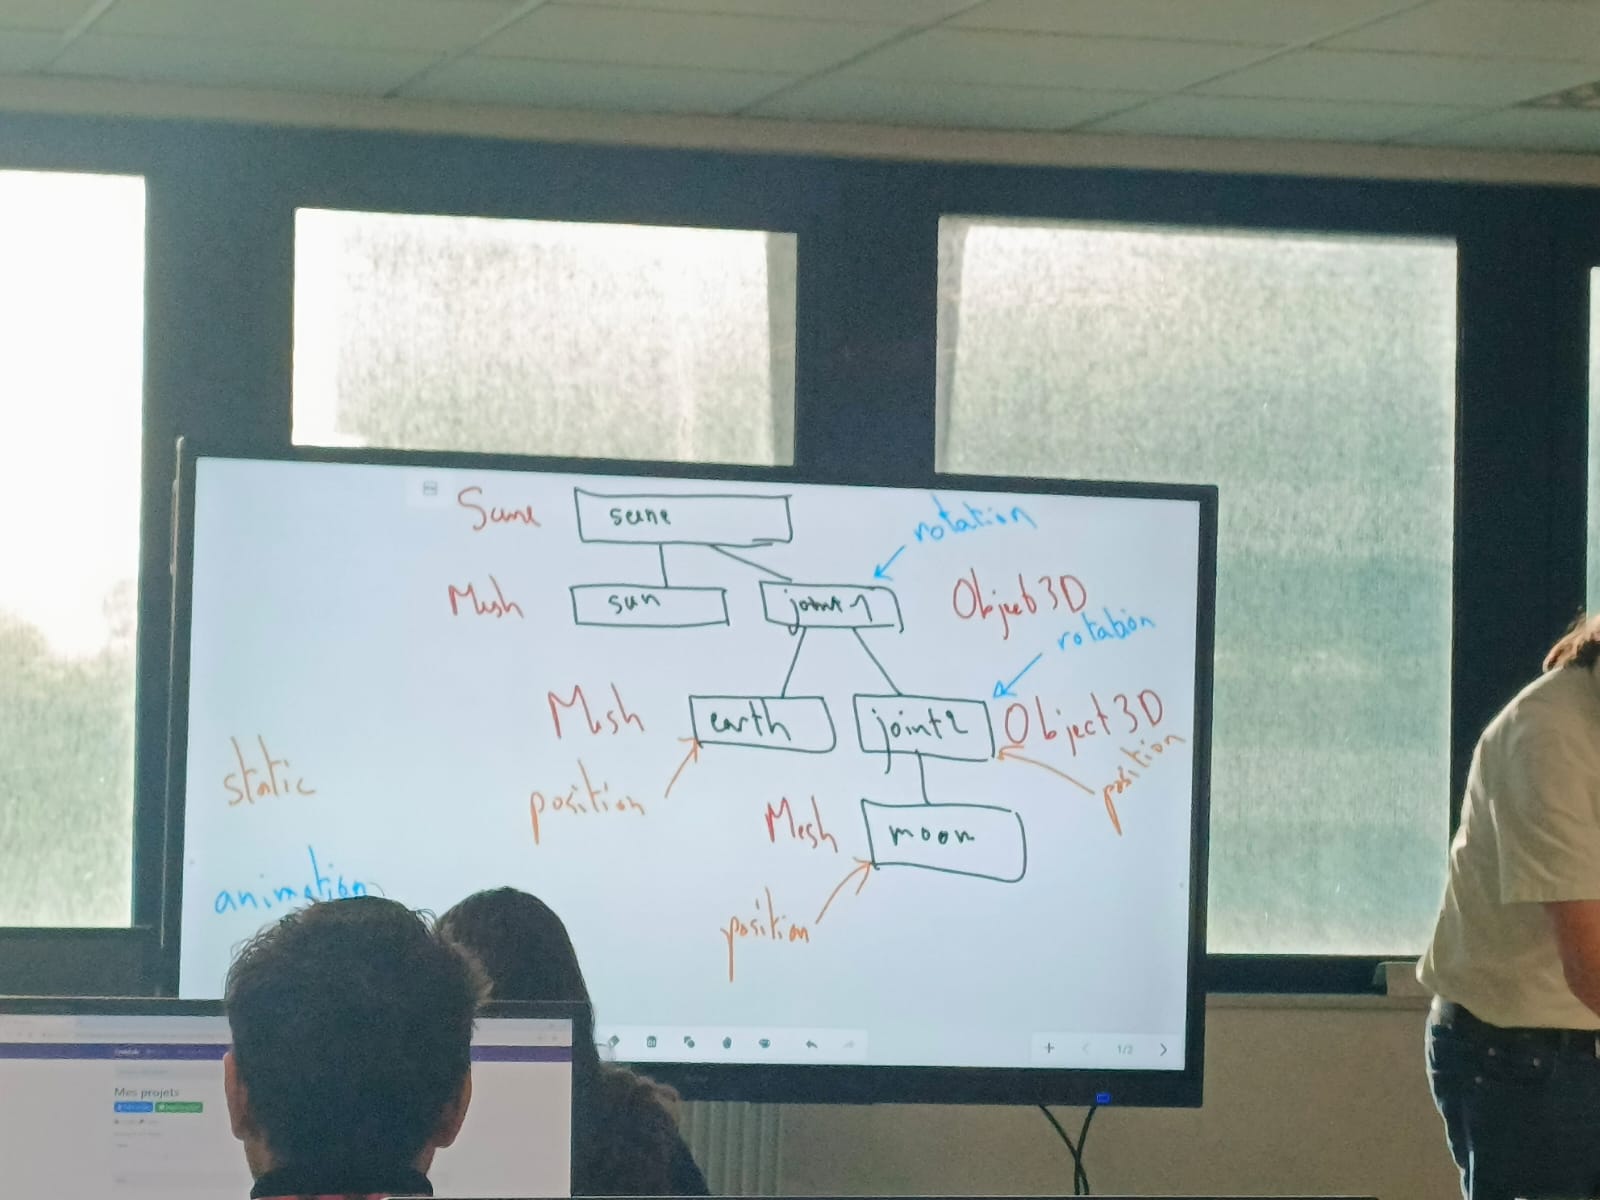 Scene
scene
rotation
Mesh
sun
joint1
Object3D
rotation
Mesh
earth
joint2
Object3D
static
position
position
Mesh
moon
animation
position
1/2
Mes projets